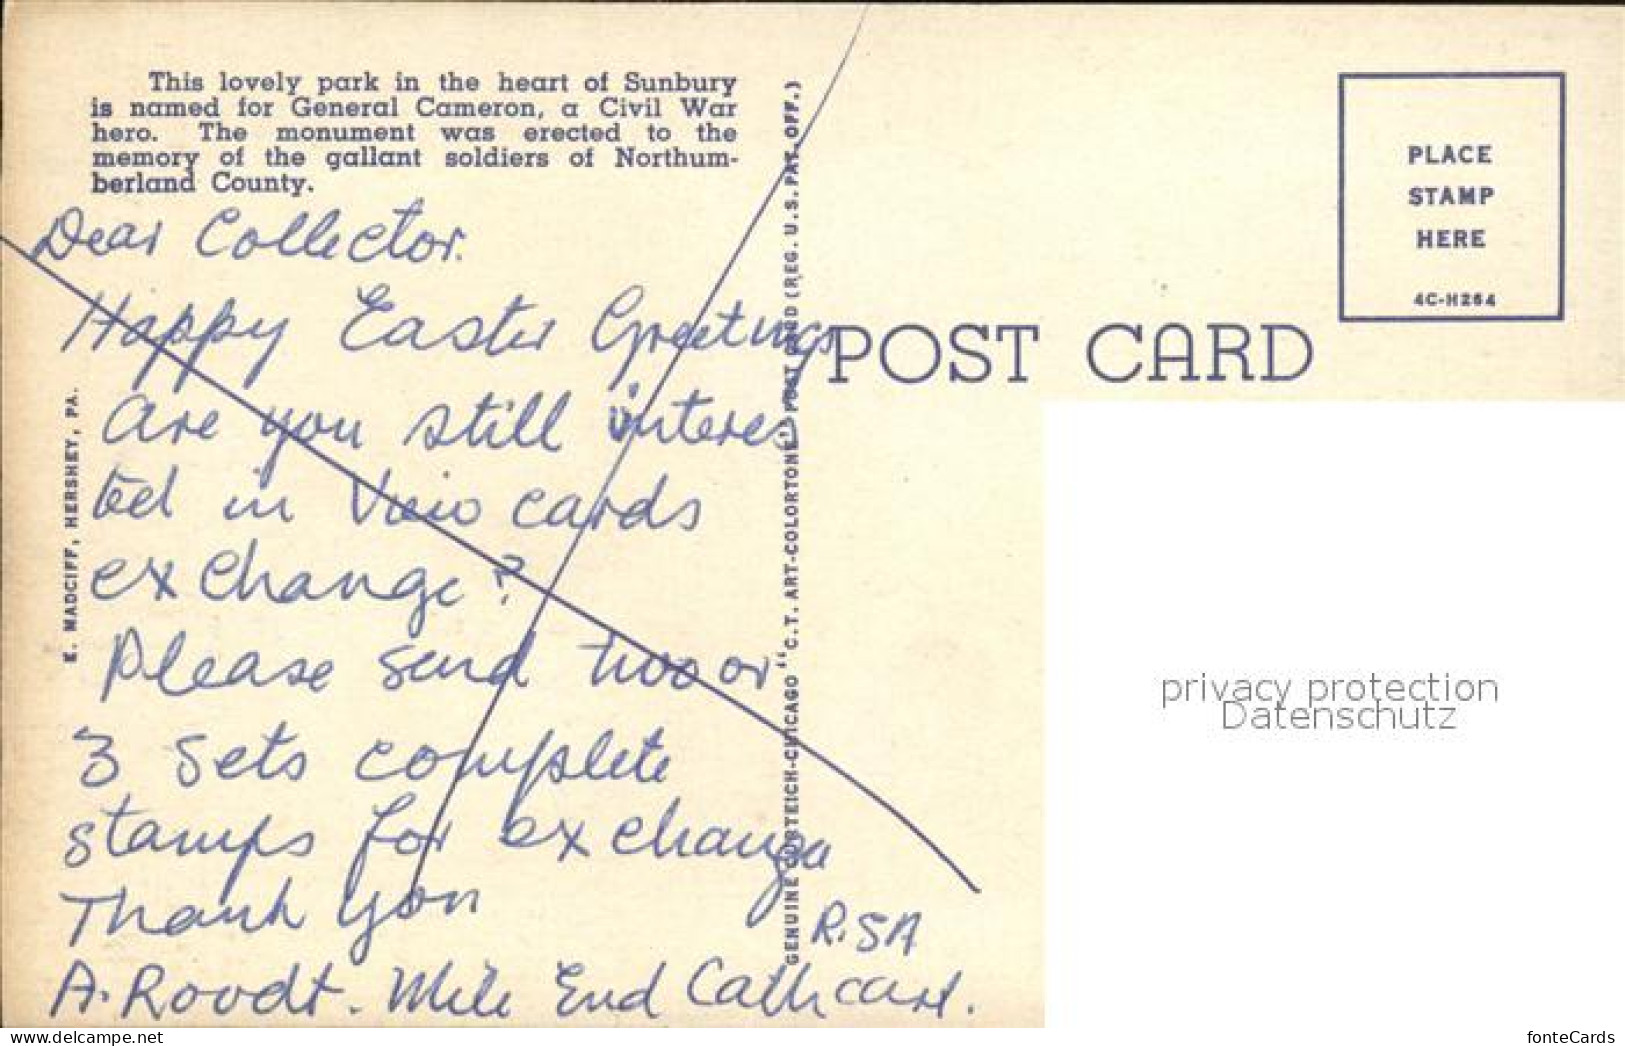 This lovely park in the heart of Sunbury
is named for General Cameron, a Civil War
hero. The monument was erected to the
memory of the gallant soldiers of Northum-
berland County.
Dear Collector.
Happy Easter Greetings
are you still interes
ted in View cards
exchange?
Please send two or
3 Sets complete
stamps for exchange
Thank you
R.SA
A. Roodt. Mile End Cathcart.
E. MADCIFF, HERSHEY, PA.
GENUINE CURTEICH-CHICAGO "C.T. ART-COLORTONE" POST CARD (REG. U.S. PAT. OFF.)
POST CARD
PLACE
STAMP
HERE
4C-H264
privacy protection
Datenschutz
https://www.delcampe.net
fonteCards